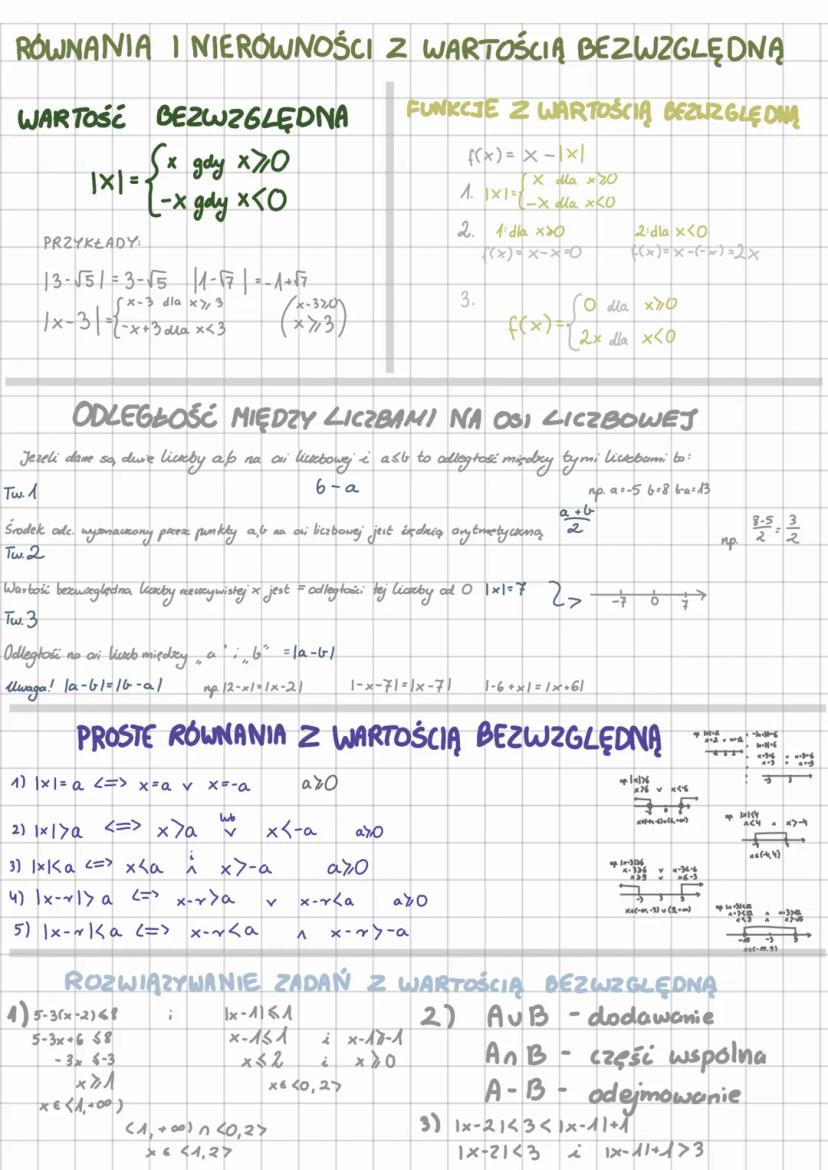 RÓWNANIA I NIERÓWNOŚCI Z WARTOŚCIĄ BEZWZGLĘDNĄ
WARTOŚĆ BEZWZGLĘDNA
|x| = { x gdy x⩾0
-x gdy x<0
PRZYKŁADY:
|3-√5| = 3-√5 |1-√7| = -1+√7
|x-3| = { x-3 dla x⩾3 (x-3⩾0)
-x+3 dla x<3 (x⩾3)
FUNKCJE Z WARTOŚCIĄ BEZWZGLĘDNĄ
f(x) = x - |x|
1. |x| = { x dla x⩾0
-x dla x<0
2. 1:dla x⩾0 2:dla x<0
f(x) = x-x=0 f(x) = x-(-x)=2x
3. f(x) = { 0 dla x⩾0
2x dla x<0
ODLEGŁOŚĆ MIĘDZY LICZBAMI NA OSI LICZBOWEJ
Jeżeli dane są dwie liczby a,b na osi liczbowej i a≤b to odległość między tymi liczbami to:
Tw. 1 b-a np. a=-5 b=8 b-a=13
Środek odc. wyznaczony przez punkty a,b na osi liczbowej jest średnią arytmetyczną (a+b)/2 np. (8-5)/2 = 3/2
Tw. 2
Wartość bezwzględna liczby rzeczywistej x jest = odległości tej liczby od 0 |x|=7
-7 0 7
Tw. 3
Odległość na osi liczb między „a" i „b" = |a-b|
Uwaga! |a-b|=|b-a| np. |2-x|=|x-2| |-x-7|=|x-7| |-6+x|=|x+6|
PROSTE RÓWNANIA Z WARTOŚCIĄ BEZWZGLĘDNĄ
1) |x|=a <=> x=a v x=-a a⩾0
2) |x|>a <=> x>a lub v x<-a a⩾0
3) |x|<a <=> x<a i ∧ x>-a a⩾0
4) |x-r|>a <=> x-r>a v x-r<a a⩾0
5) |x-r|<a <=> x-r<a ∧ x-r>-a
np |x|⩾6
x⩾6 v x≤-6
np |x|≤4
x<4 ∧ x>-4
x∈(-4,4)
np |x-3|⩾6
x-3⩾6 v x-3≤-6
x⩾9 v x≤-3
ROZWIĄZYWANIE ZADAŃ Z WARTOŚCIĄ BEZWZGLĘDNĄ
1) 5-3(x-2)≤8 i |x-1|≤1
5-3x+6 ≤8 x-1≤1 i x-1⩾-1
-3x ≤-3 x≤2 i x⩾0
x⩾1 x∈<0,2>
x∈<1,+∞)
<1,+∞)∩<0,2>
x∈<1,2>
2) A∪B - dodawanie
A∩B - część wspólna
A-B - odejmowanie
3) |x-2|<3<|x-1|+1
|x-2|<3 i |x-1|+1>3